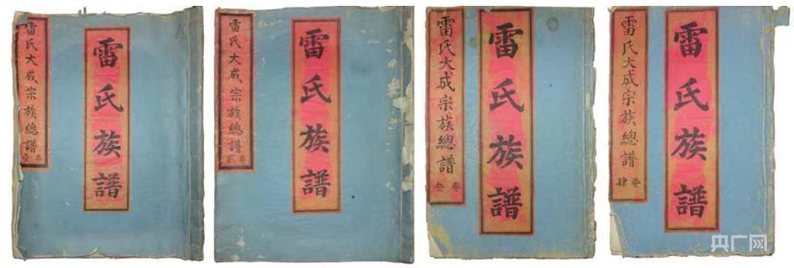 雷氏大成宗族總譜
卷壹
雷氏族譜
雷氏大成宗族總譜
卷貳
雷氏族譜
雷氏大成宗族總譜
卷叁
雷氏族譜
雷氏大成宗族總譜
卷肆
雷氏族譜
央广网